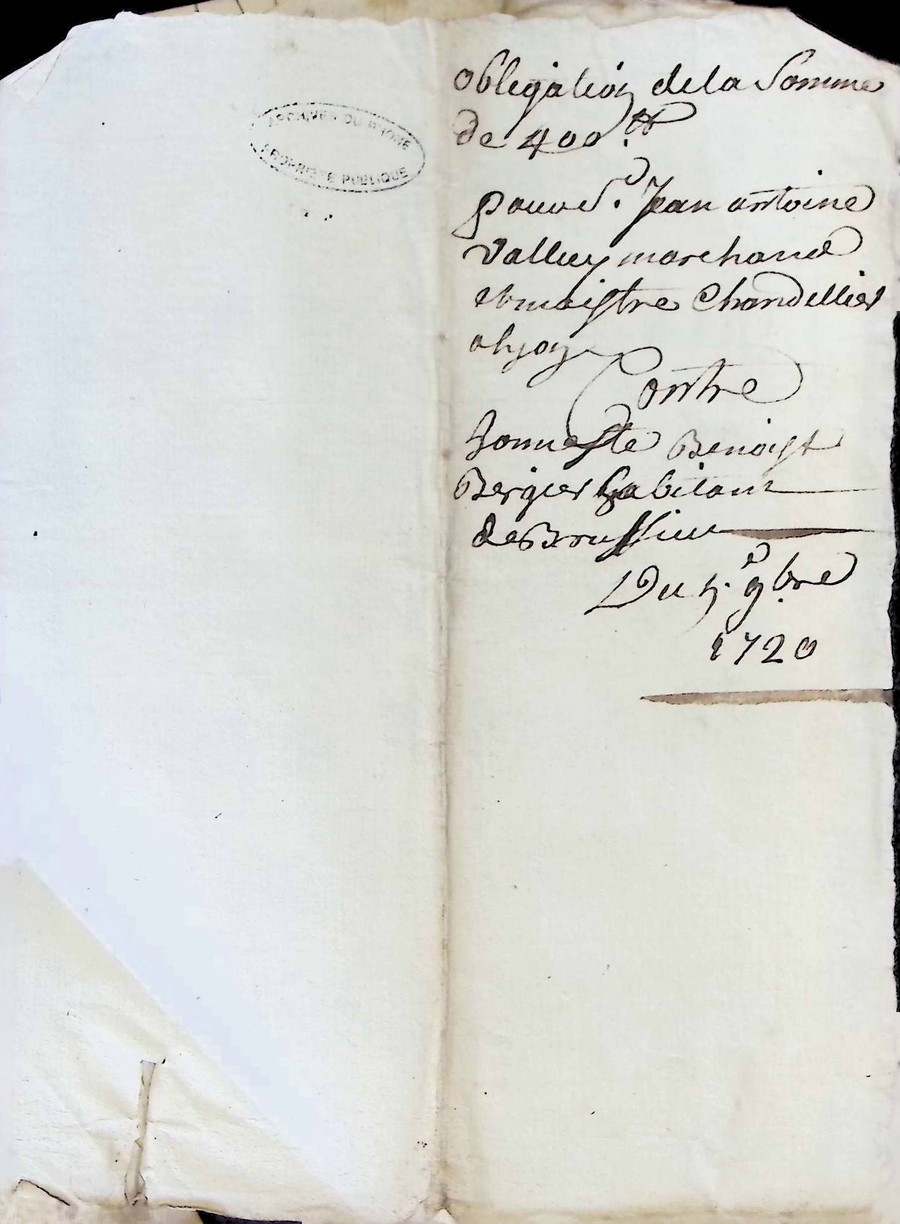 ARCHIVES DU RHONE
PROPRIÉTÉ PUBLIQUE
obligation de la Somme
de 400.tt
pour sr. Jean antoine
Valluy marchand
et maistre Chandellier
a lyon
Contre
honneste Benoist
Bergier habitant
de Brussieu
Du 5.e 9bre
1720